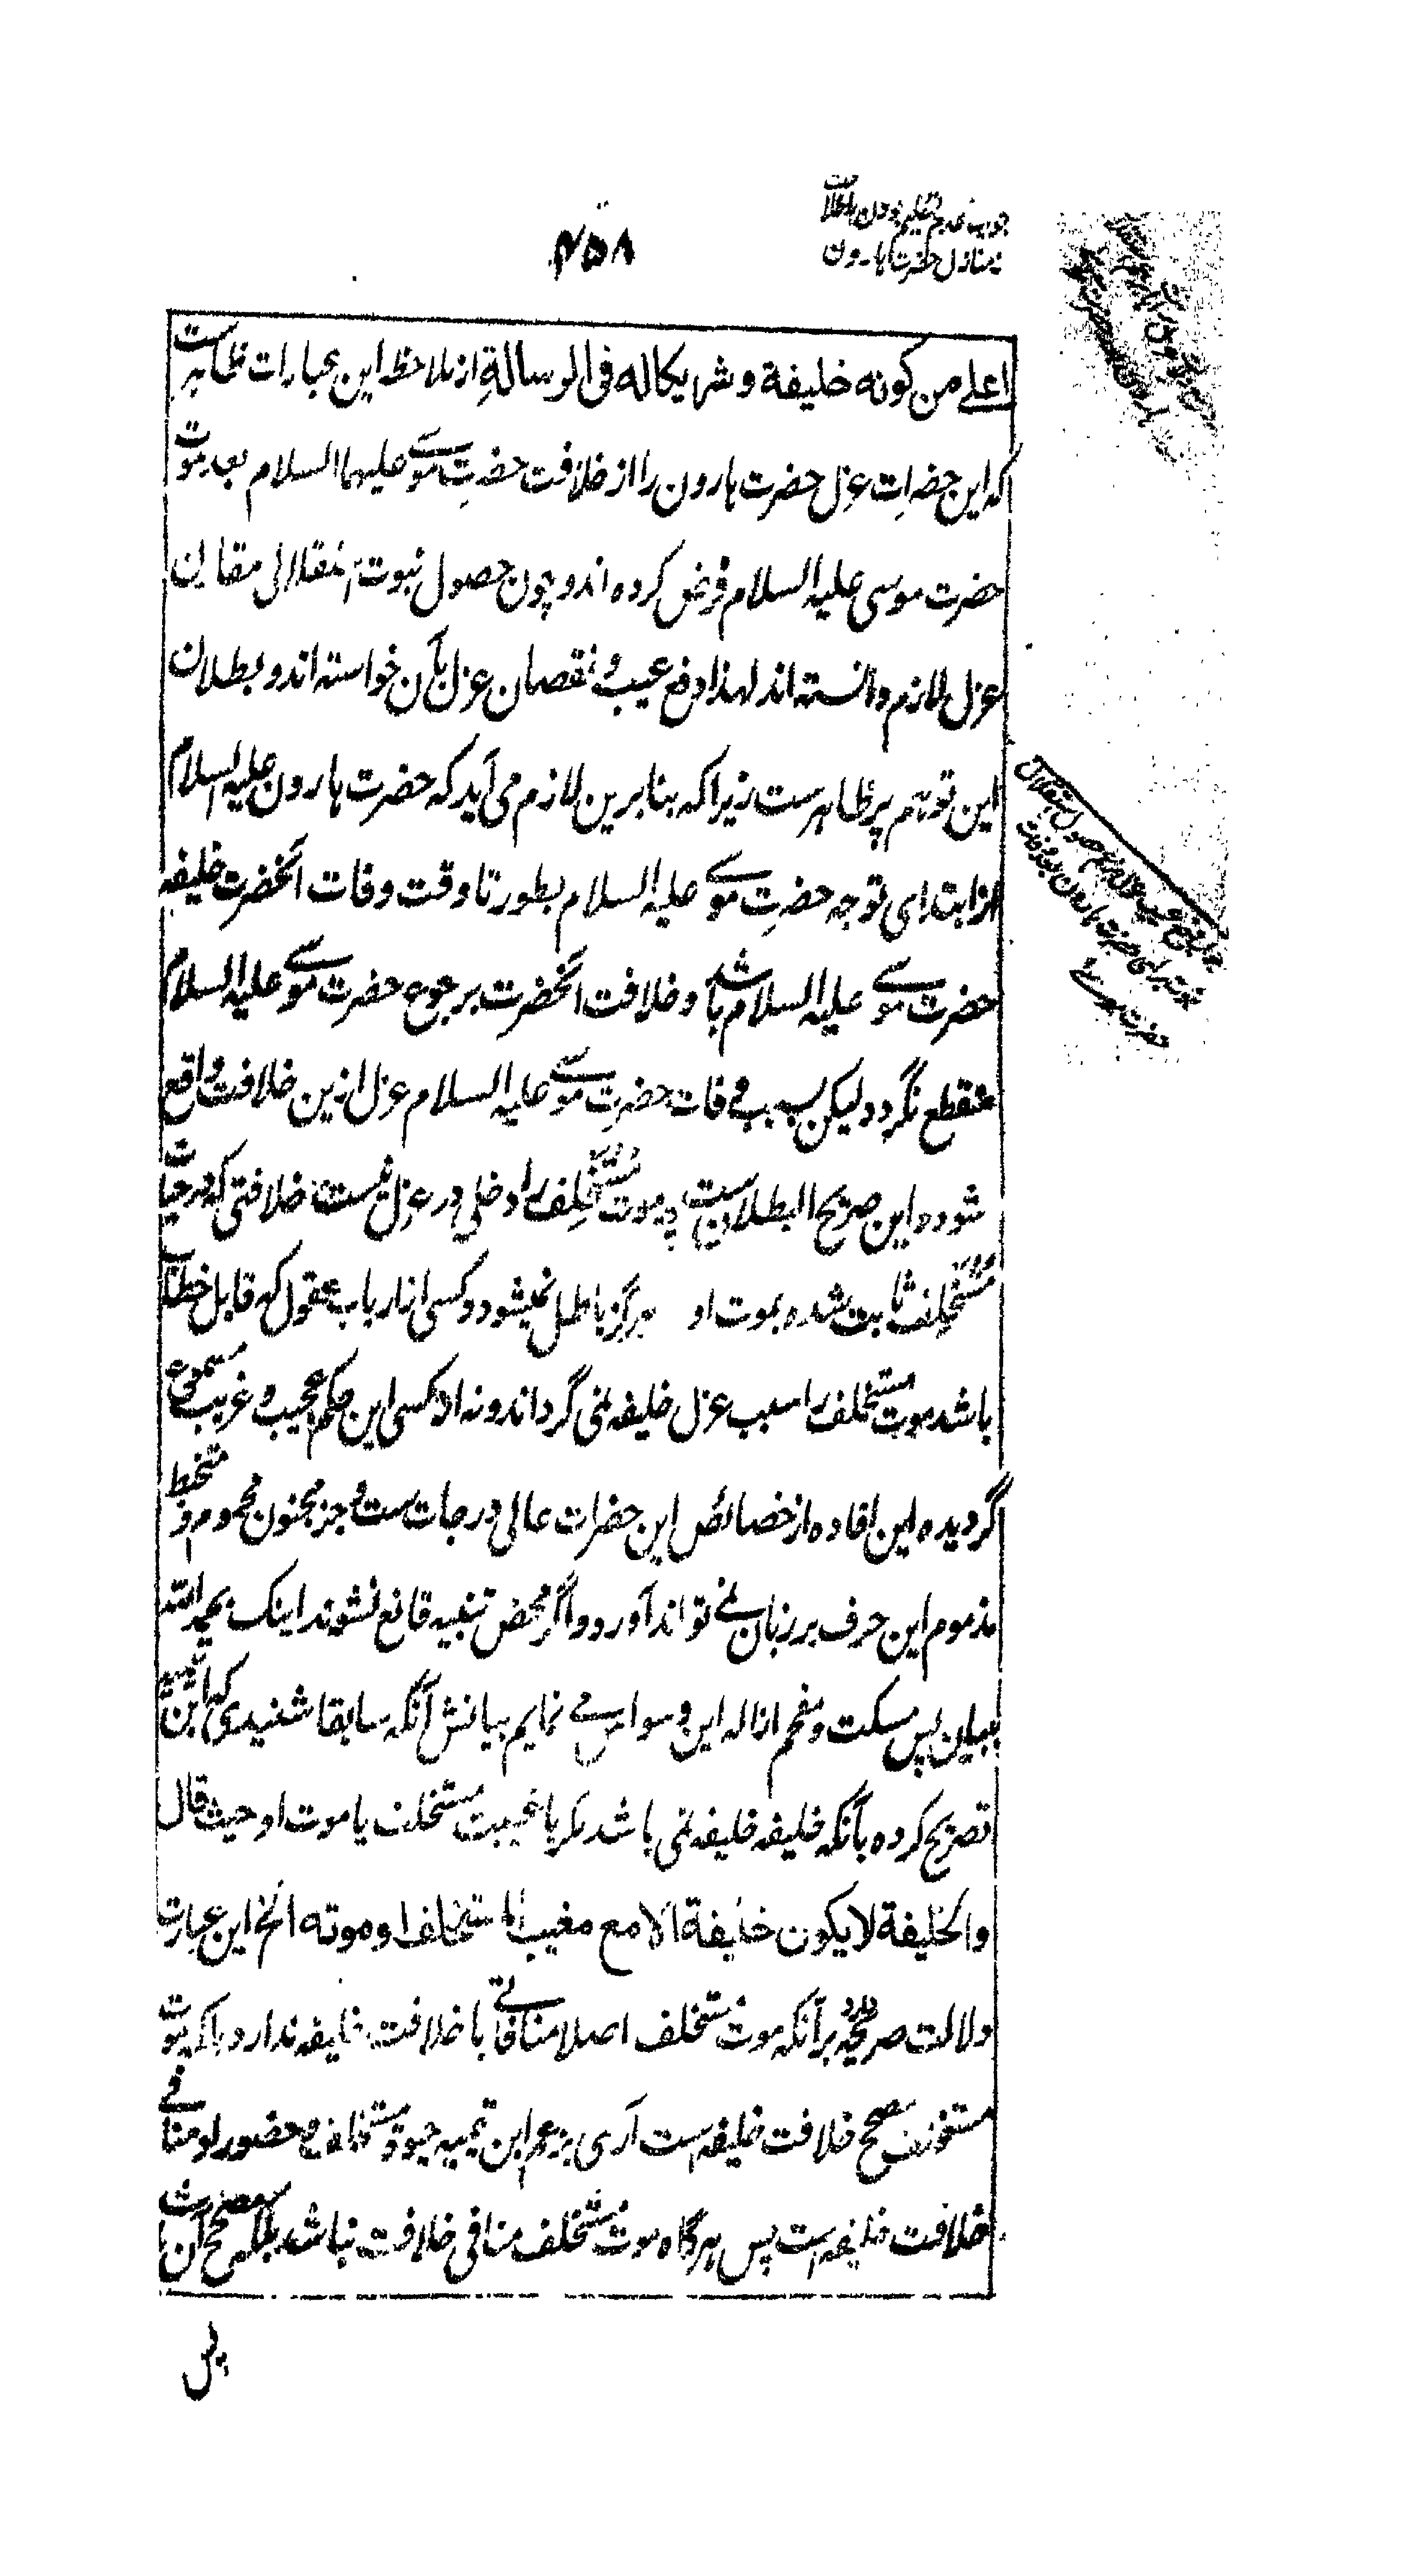 ۴۵۸
منازل حضرت هارون
اعلى من كونه خليفة و شريكا له فى الرسالة از ملاحظه این عبارات ظاهرست
که این حضرات عزل حضرت هارون را از خلافت حضرت موسے علیهما السلام بعد موت
حضرت موسی علیه السلام فرض کرده اند و چون حصول نبوت استقلالی مقارن
عزل لازم دانسته اند لهذا دفع عیب و نقصان عزل بآن خواسته اند و بطلان
این توهم پر ظاهرست زیرا که بنابرین لازم می آید که حضرت هارون علیه السلام
از ابتدای توجه حضرت موسے علیه السلام بطور تا وقت وفات آنحضرت خلیفه
حضرت موسے علیه السلام باشد و خلافت آنحضرت برجوع حضرت موسے علیه السلام
منقطع نگردد لیکن بسبب وفات حضرت موسے علیه السلام عزل ازین خلافت واقع
شود و این صریح البطلان ست چه موت مستخلف را دخلی در عزل نیست خلافتی که در حیات
مستخلف ثابت شده بموت او هرگز باطل نمیشود و کسی از ارباب عقول که قابل خطاب
باشد موت مستخلف را سبب عزل خلیفه نمی گرداند و نه از کسی این حکم عجیب و غریب مسموع
گردیده این افاده از خصائص این حضرات عالی درجات ست و جز مجنون محموم و متخبط
مذموم این حرف بر زبان نمے تواند آورد و اگر محض تنبیه قانع نشوند اینک بحمد الله
ببیان پس مسکت و مفحم ازاله این وسواس مے نمایم بیانش آنکه سابقا شنیدی که ابن تیمیه
تصریح کرده بآنکه خلیفه خلیفه نمی باشد مگر با غیبت مستخلف یا موت او حیث قال
والخليفة لا يكون خليفة الا مع مغيب المستخلف او موته الخ این عبارت
دلالت صریحه دارد بر آنکه موت مستخلف اصلا منافاتے با خلافت خلیفه ندارد بلکه موت
مستخلف مصحح خلافت خلیفه ست آری بزعم ابن تیمیه حیوة مستخلف و حضور او منافے
خلافت خلیفه است پس هرگاه موت مستخلف منافی خلافت نباشد بلکه مصحح آن باشد
پس